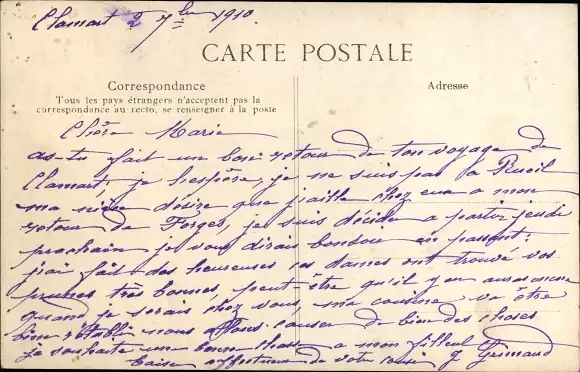 Clamart 2 7bre 1910.
CARTE POSTALE
Correspondance
Tous les pays étrangers n'acceptent pas la
correspondance au recto, se renseigner à la poste
Adresse
Chère Marie
as-tu fait un bon retour de ton voyage de
Clamart, je l'espère, je ne suis pas a Rueil
ma nièce désire que j'aille chez eux a mon
retour de Forges, je suis décidé a partir jeudi
prochain je vous dirais bonsoir en passant;
j'ai fait des heureuses, ces dames ont trouvé vos
prunes très bonnes, peut être qu'il y en aura encore
quand je serais chez vous, ma cousine va être
bien rétablie nous causer de bien des choses
je souhaite une bonne a mon filleul
baise affectueux de votre cousin J Grimaud